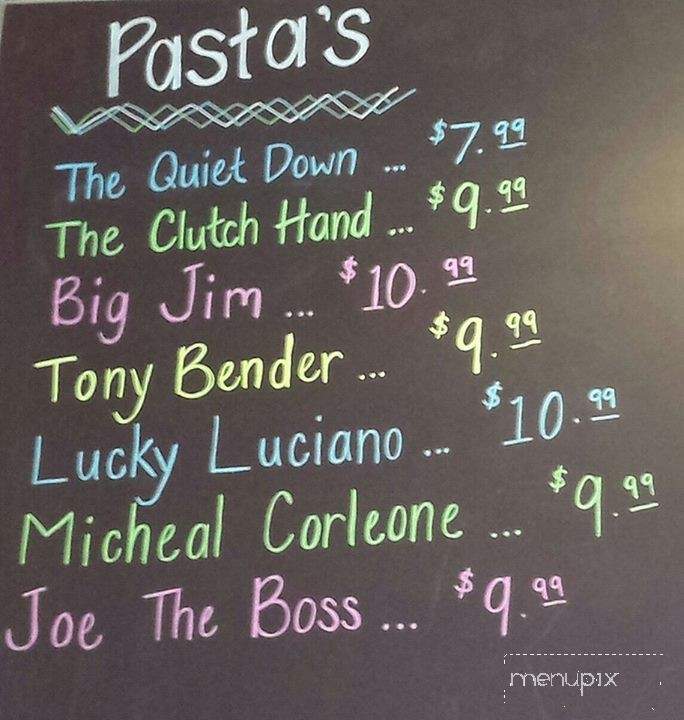 Pasta's
The Quiet Down ... $7.99
The Clutch Hand ... $9.99
Big Jim ... $10.99
Tony Bender ... $9.99
Lucky Luciano ... $10.99
Micheal Corleone ... $9.99
Joe The Boss ... $9.99
menupix